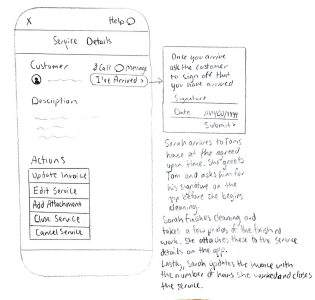 X Help
Service Details
Customer Call Message
I've Arrived >
Description
Actions
Update Invoice
Edit Service
Add Attachment
Close Service
Cancel Service
Once you arrive
ask the customer
to sign off that
you have arrived
Signature
Date MM/DD/YYYY
Submit >
Sarah arrives to Toms
house at the agreed
upon time. She greets
Tom and asks him for
his signature on the
app before she begins
cleaning.
Sarah finishes cleaning and
takes a few photos of the finished
work. She attaches these to the service
details on the app.
Lastly, Sarah updates the invoice with
the number of hours she worked and closes
the service.